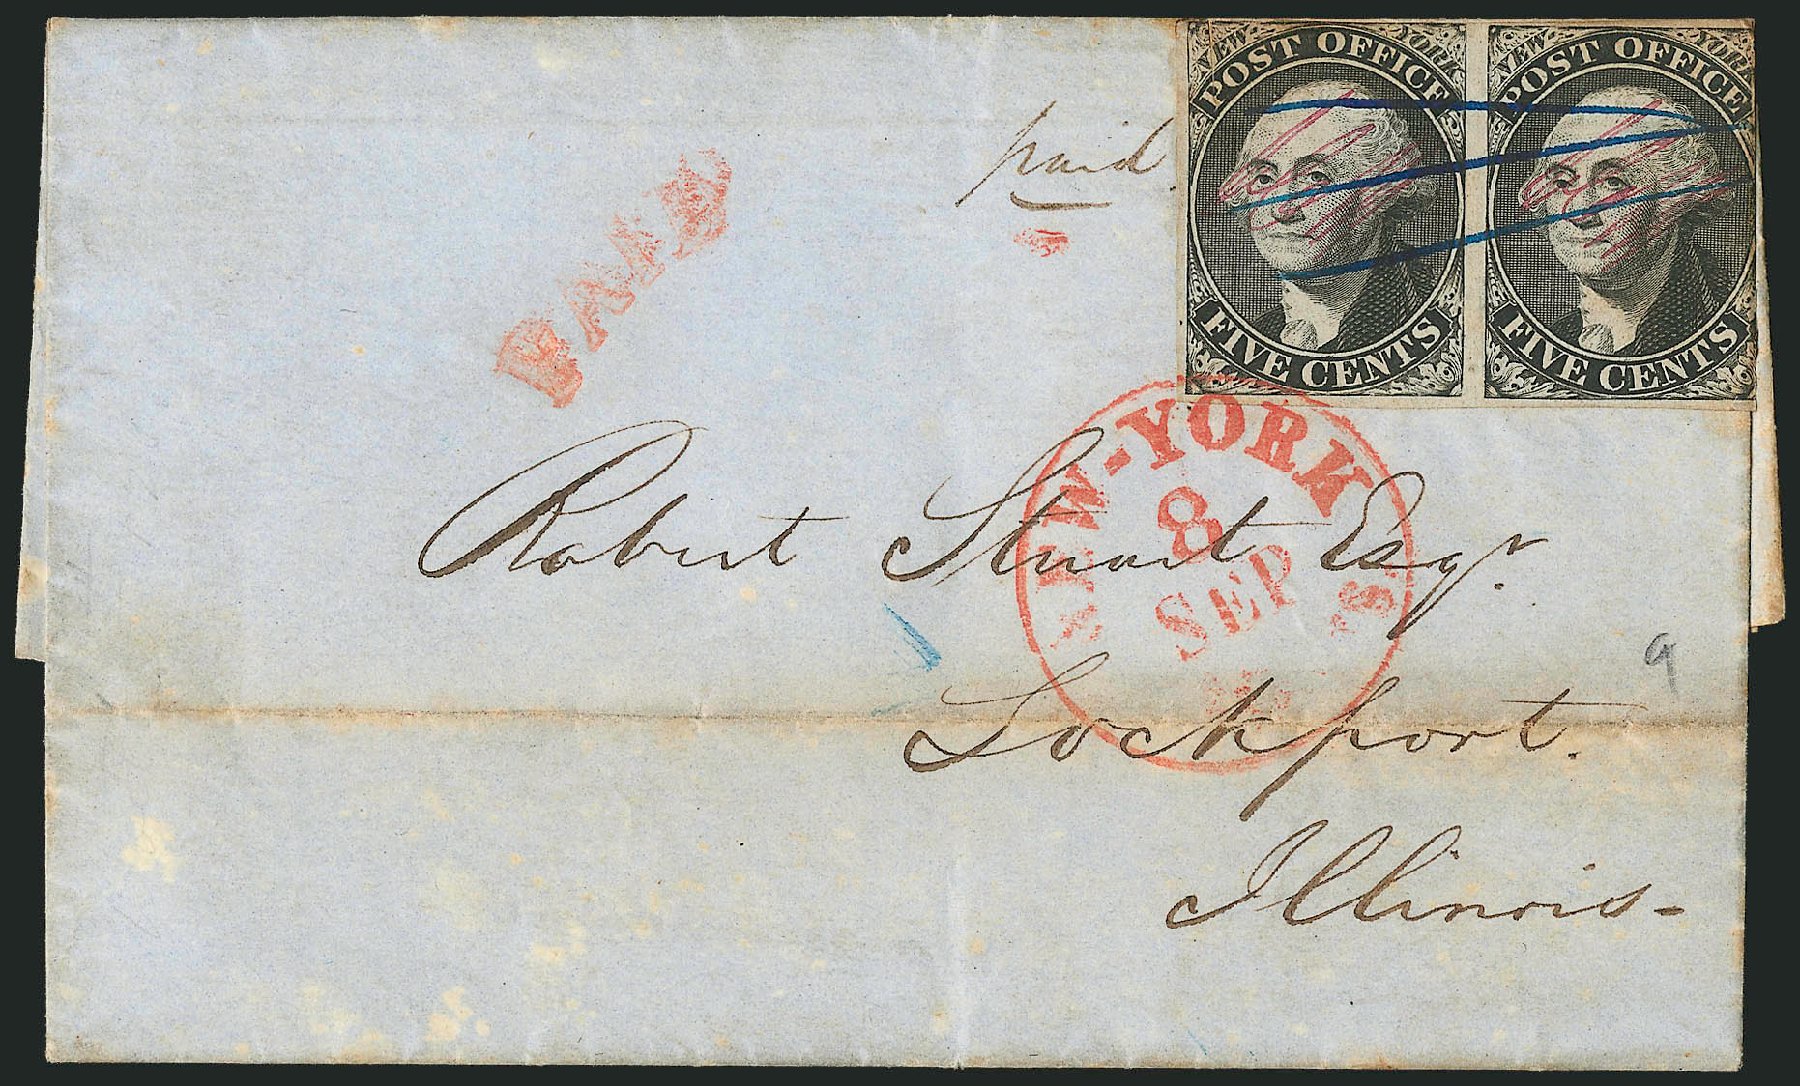 NEW YORK
POST OFFICE
FIVE CENTS
NEW YORK
POST OFFICE
FIVE CENTS
paid
PAID
NEW-YORK
8
SEP
Robert Stuart Esqr.
Lockport.
Illinois-
9